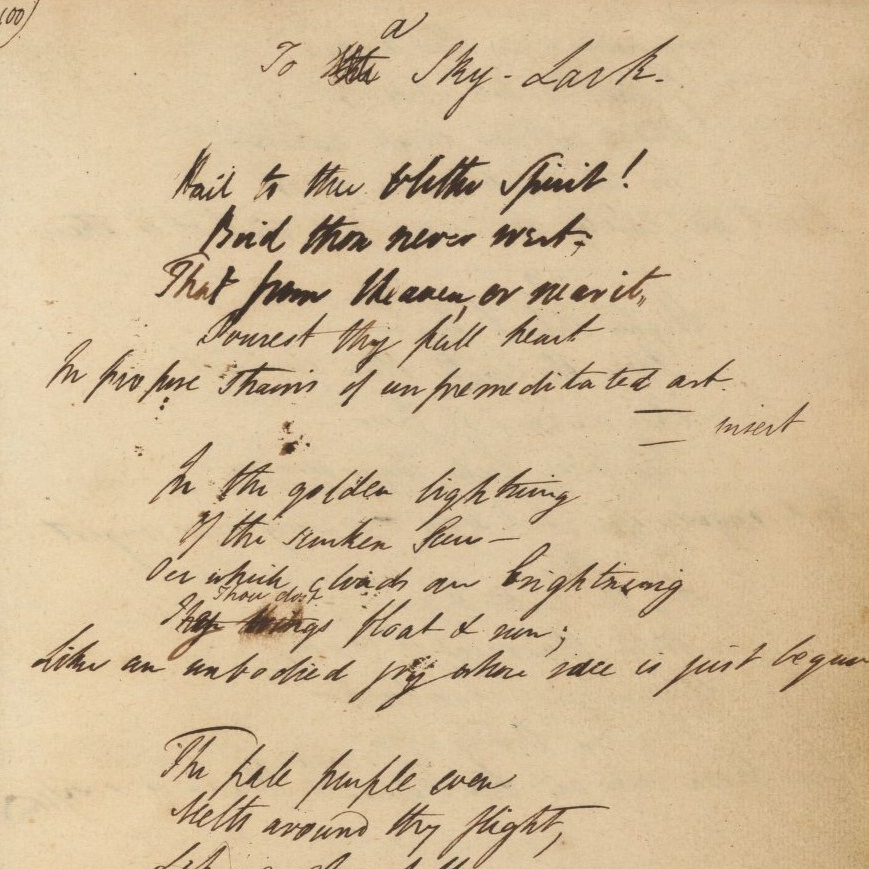 100)
a
To the Sky-Lark.
Hail to thee blithe Spirit!
Bird thou never wert,
That from Heaven, or near it,
Pourest thy full heart
In profuse strains of unpremeditated art.
insert
In the golden lightning
Of the sunken Sun—
Oer which clouds are brightning
Thou dost
Thy wings float & run;
Like an unbodied joy whose race is just begun
The pale purple even
Melts around thy flight,